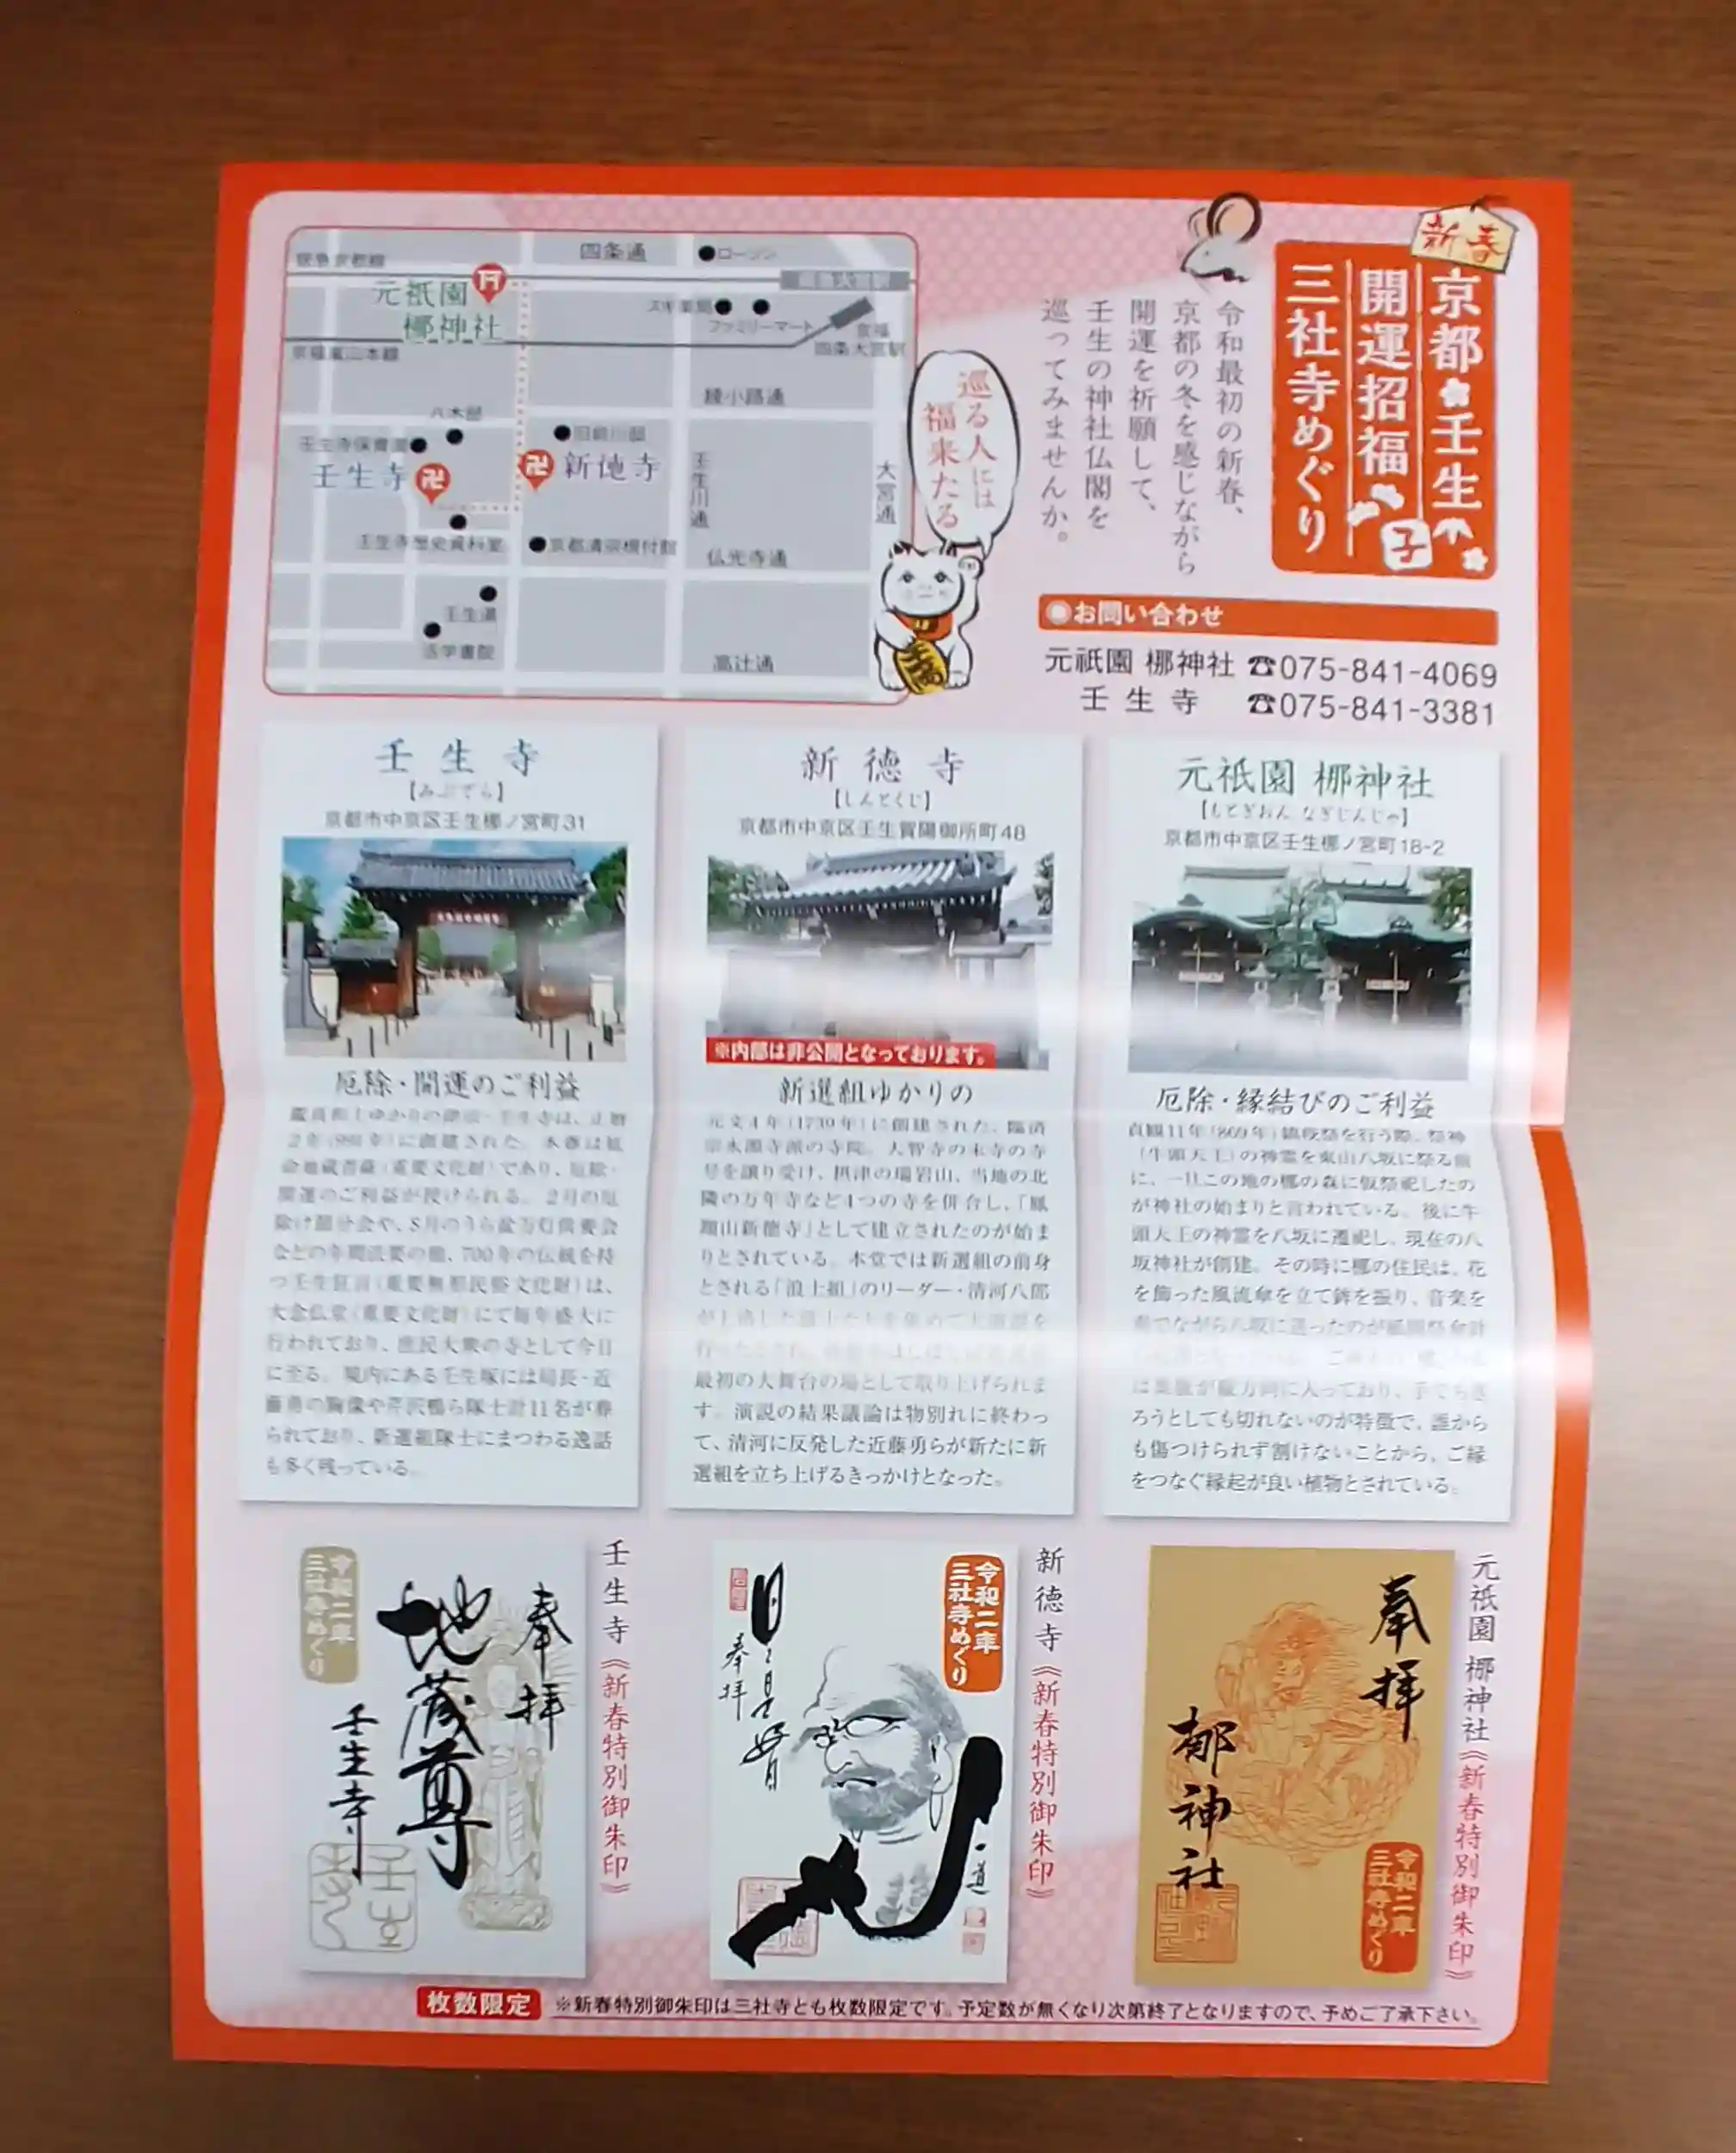 新春
京都壬生
開運招福
子
三社寺めぐり
令和最初の新春、
京都の冬を感じながら
開運を祈願して、
壬生の神社仏閣を
巡ってみませんか。
巡る人には
福来たる
お問い合わせ
元祇園 梛神社 ☎075-841-4069
壬生寺 ☎075-841-3381
阪急京都線
四条通
ローソン
元祇園
梛神社
ファミリーマート
京福
四条大宮駅
京福嵐山本線
綾小路通
八木邸
壬生寺保育園
壬生寺
新徳寺
壬生川通
大宮通
壬生寺歴史資料室
京都清宗根付館
仏光寺通
壬生湯
高辻通
壬生寺
【みぶでら】
京都市中京区壬生梛ノ宮町31
厄除・開運のご利益
金地蔵菩薩(重要文化財)であり、厄除・
開運のご利益が授けられる。2月の厄
などの年間法要の他、700年の伝統を持
つ壬生狂言(重要無形民俗文化財)は、
大念仏堂(重要文化財)にて毎年盛大に
行われており、庶民大衆の寺として今日
に至る。境内にある壬生塚には局長・近
藤勇の胸像や芹沢鴨ら隊士計11名が葬
られており、新選組隊士にまつわる逸話
も多く残っている。
新徳寺
【しんとくじ】
京都市中京区壬生賀陽御所町48
※内部は非公開となっております。
新選組ゆかりの
元文4年(1739年)に創建された、臨済
宗永源寺派の寺院。大智寺の末寺の寺
号を譲り受け、摂津の瑞岩山、当地の北
隣の万年寺など4つの寺を併合し、「鳳
翔山新徳寺」として建立されたのが始ま
りとされている。本堂では新選組の前身
とされる「浪士組」のリーダー・清河八郎
最初の大舞台の場として取り上げられま
す。演説の結果議論は物別れに終わっ
て、清河に反発した近藤勇らが新たに新
選組を立ち上げるきっかけとなった。
元祇園 梛神社
【もとぎおん なぎじんじゃ】
京都市中京区壬生梛ノ宮町18-2
厄除・縁結びのご利益
貞観11年(869年)鎮疫祭を行う際、祭神
(牛頭天王)の神霊を東山八坂に祭る前
に、一旦この地の梛の森に仮祭祀したの
が神社の始まりと言われている。後に牛
頭天王の神霊を八坂に遷祀し、現在の八
坂神社が創建。その時に梛の住民は、花
を飾った風流傘を立て鉾を振り、音楽を
は葉脈が縦方向に入っており、手でちぎ
ろうとしても切れないのが特徴で、誰から
も傷つけられず割けないことから、ご縁
をつなぐ縁起が良い植物とされている。
壬生寺《新春特別御朱印》
奉拝
地蔵尊
壬生寺
令和二年
三社寺めぐり
新徳寺《新春特別御朱印》
令和二年
三社寺めぐり
奉拝
元祇園 梛神社《新春特別御朱印》
奉拝
梛神社
令和二年
三社寺めぐり
枚数限定 ※新春特別御朱印は三社寺とも枚数限定です。予定数が無くなり次第終了となりますので、予めご了承下さい。